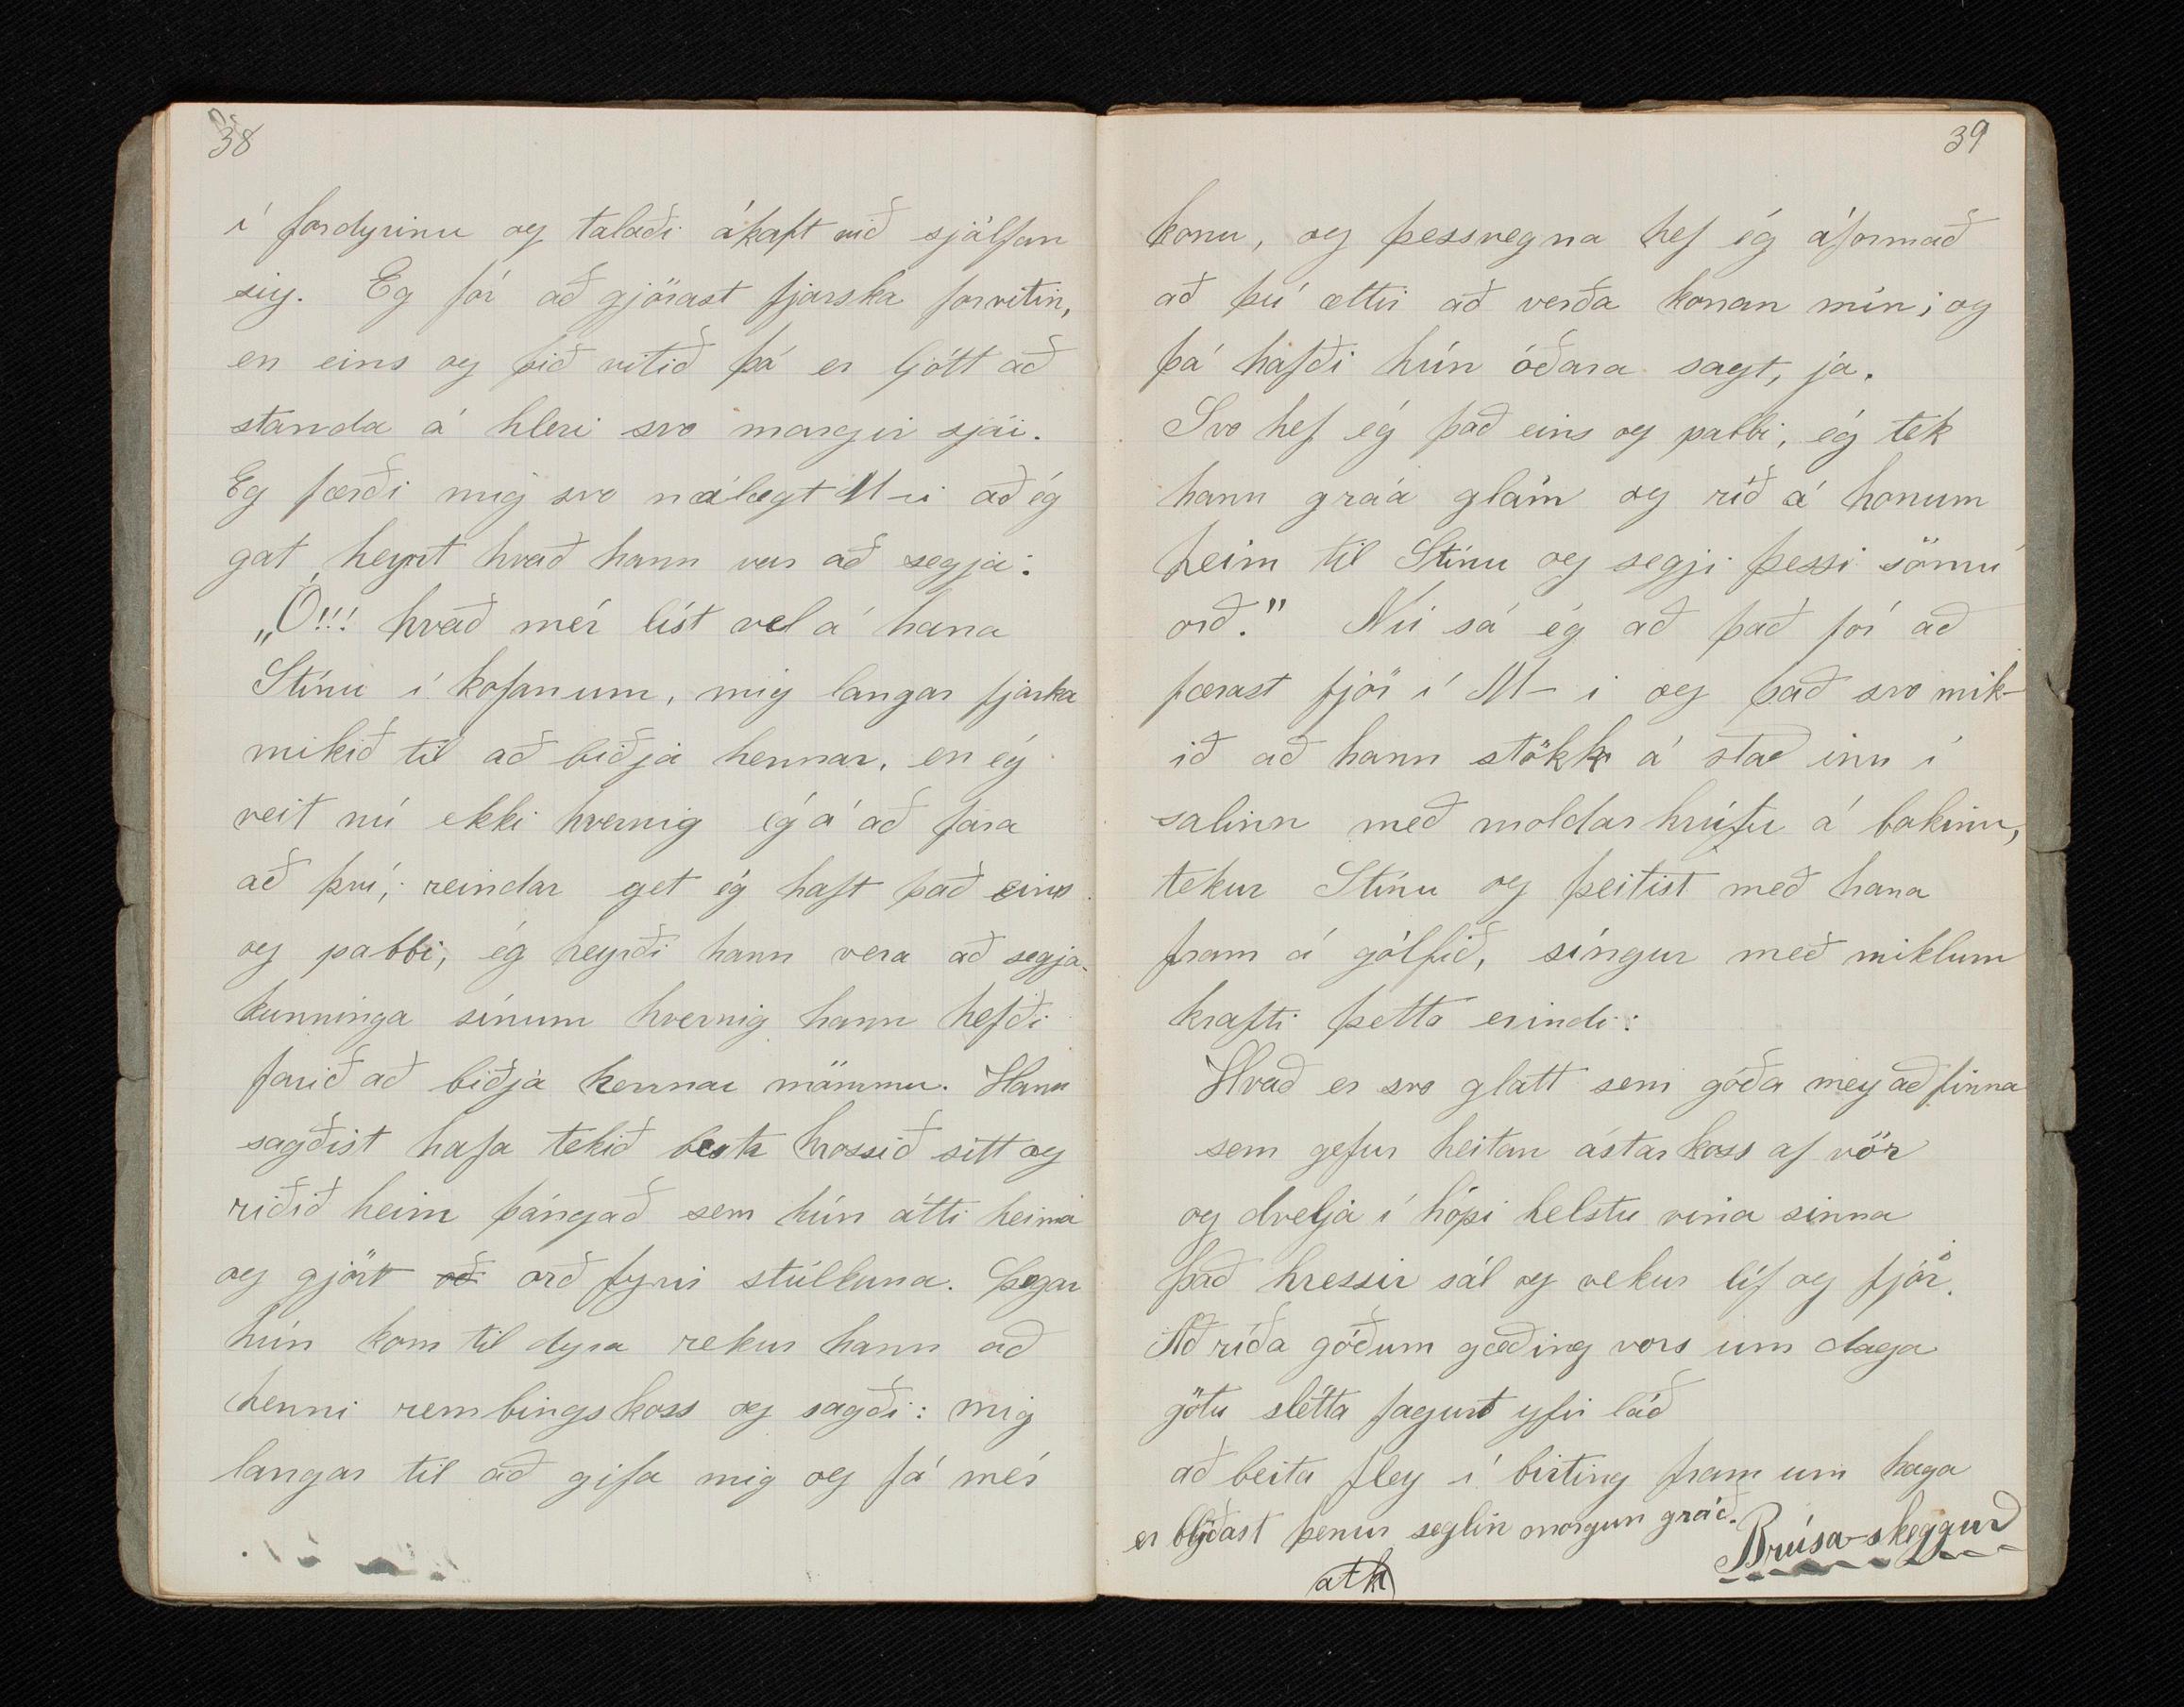 38
í fordyrinu og talaði ákaft við sjálfan
sig. Eg fór að gjörast fjarska forvitin,
en eins og þið vitið þá er ljótt að
standa á hleri svo margir sjái.
Eg færði mig svo nálægt M-i að ég
gat heyrt hvað hann var að segja:
„Ó!!! hvað mér líst vel á hana
Stínu í kofanum, mig langar fjarka
mikið til að biðja hennar, en ég
veit nú ekki hvernig ég á að fara
að því; reindar get ég haft það eins
og pabbi, ég heyrði hann vera að segja
kunninga sínum hvernig hann hefði
farið að biðja hennar mömmu. Hann
sagðist hafa tekið besta hrossið sitt og
riðið heim þángað sem hún átti heima
og gjört orð fyrir stúlkuna. Þegar
hún kom til dyra rekur hann að
henni rembingskoss og sagði: mig
langar til að gifa mig og fá mér
39
konu, og þessvegna hef ég áformað
að þú ættir að verða konan mín; og
þá hafði hún óðara sagt, já.
Svo hef ég það eins og pabbi, ég tek
hann gráa glám og ríð á honum
heim til Stínu og segji þessi sömu
orð." Nú sá ég að það fór að
færast fjör í M-i og það svo mik-
ið að hann stökk á stað inn í
salinn með moldarhrúfu á bakinu,
tekur Stínu og þeitist með hana
fram á gólfið, síngur með miklum
krafti þetta erindi:
Hvað er svo glatt sem góða mey að finna
sem gefur heitan ástarkoss af vör
og dvelja í hópi helstu vina sinna
það hressir sál og vekur líf og fjör.
Að ríða góðum gæðing vors um daga
götu slétta fagurt yfir láð
að beita fley í birting fram um haga
er blíðast þenur seglin morgun gráð.
Brúsa-skeggur
ath